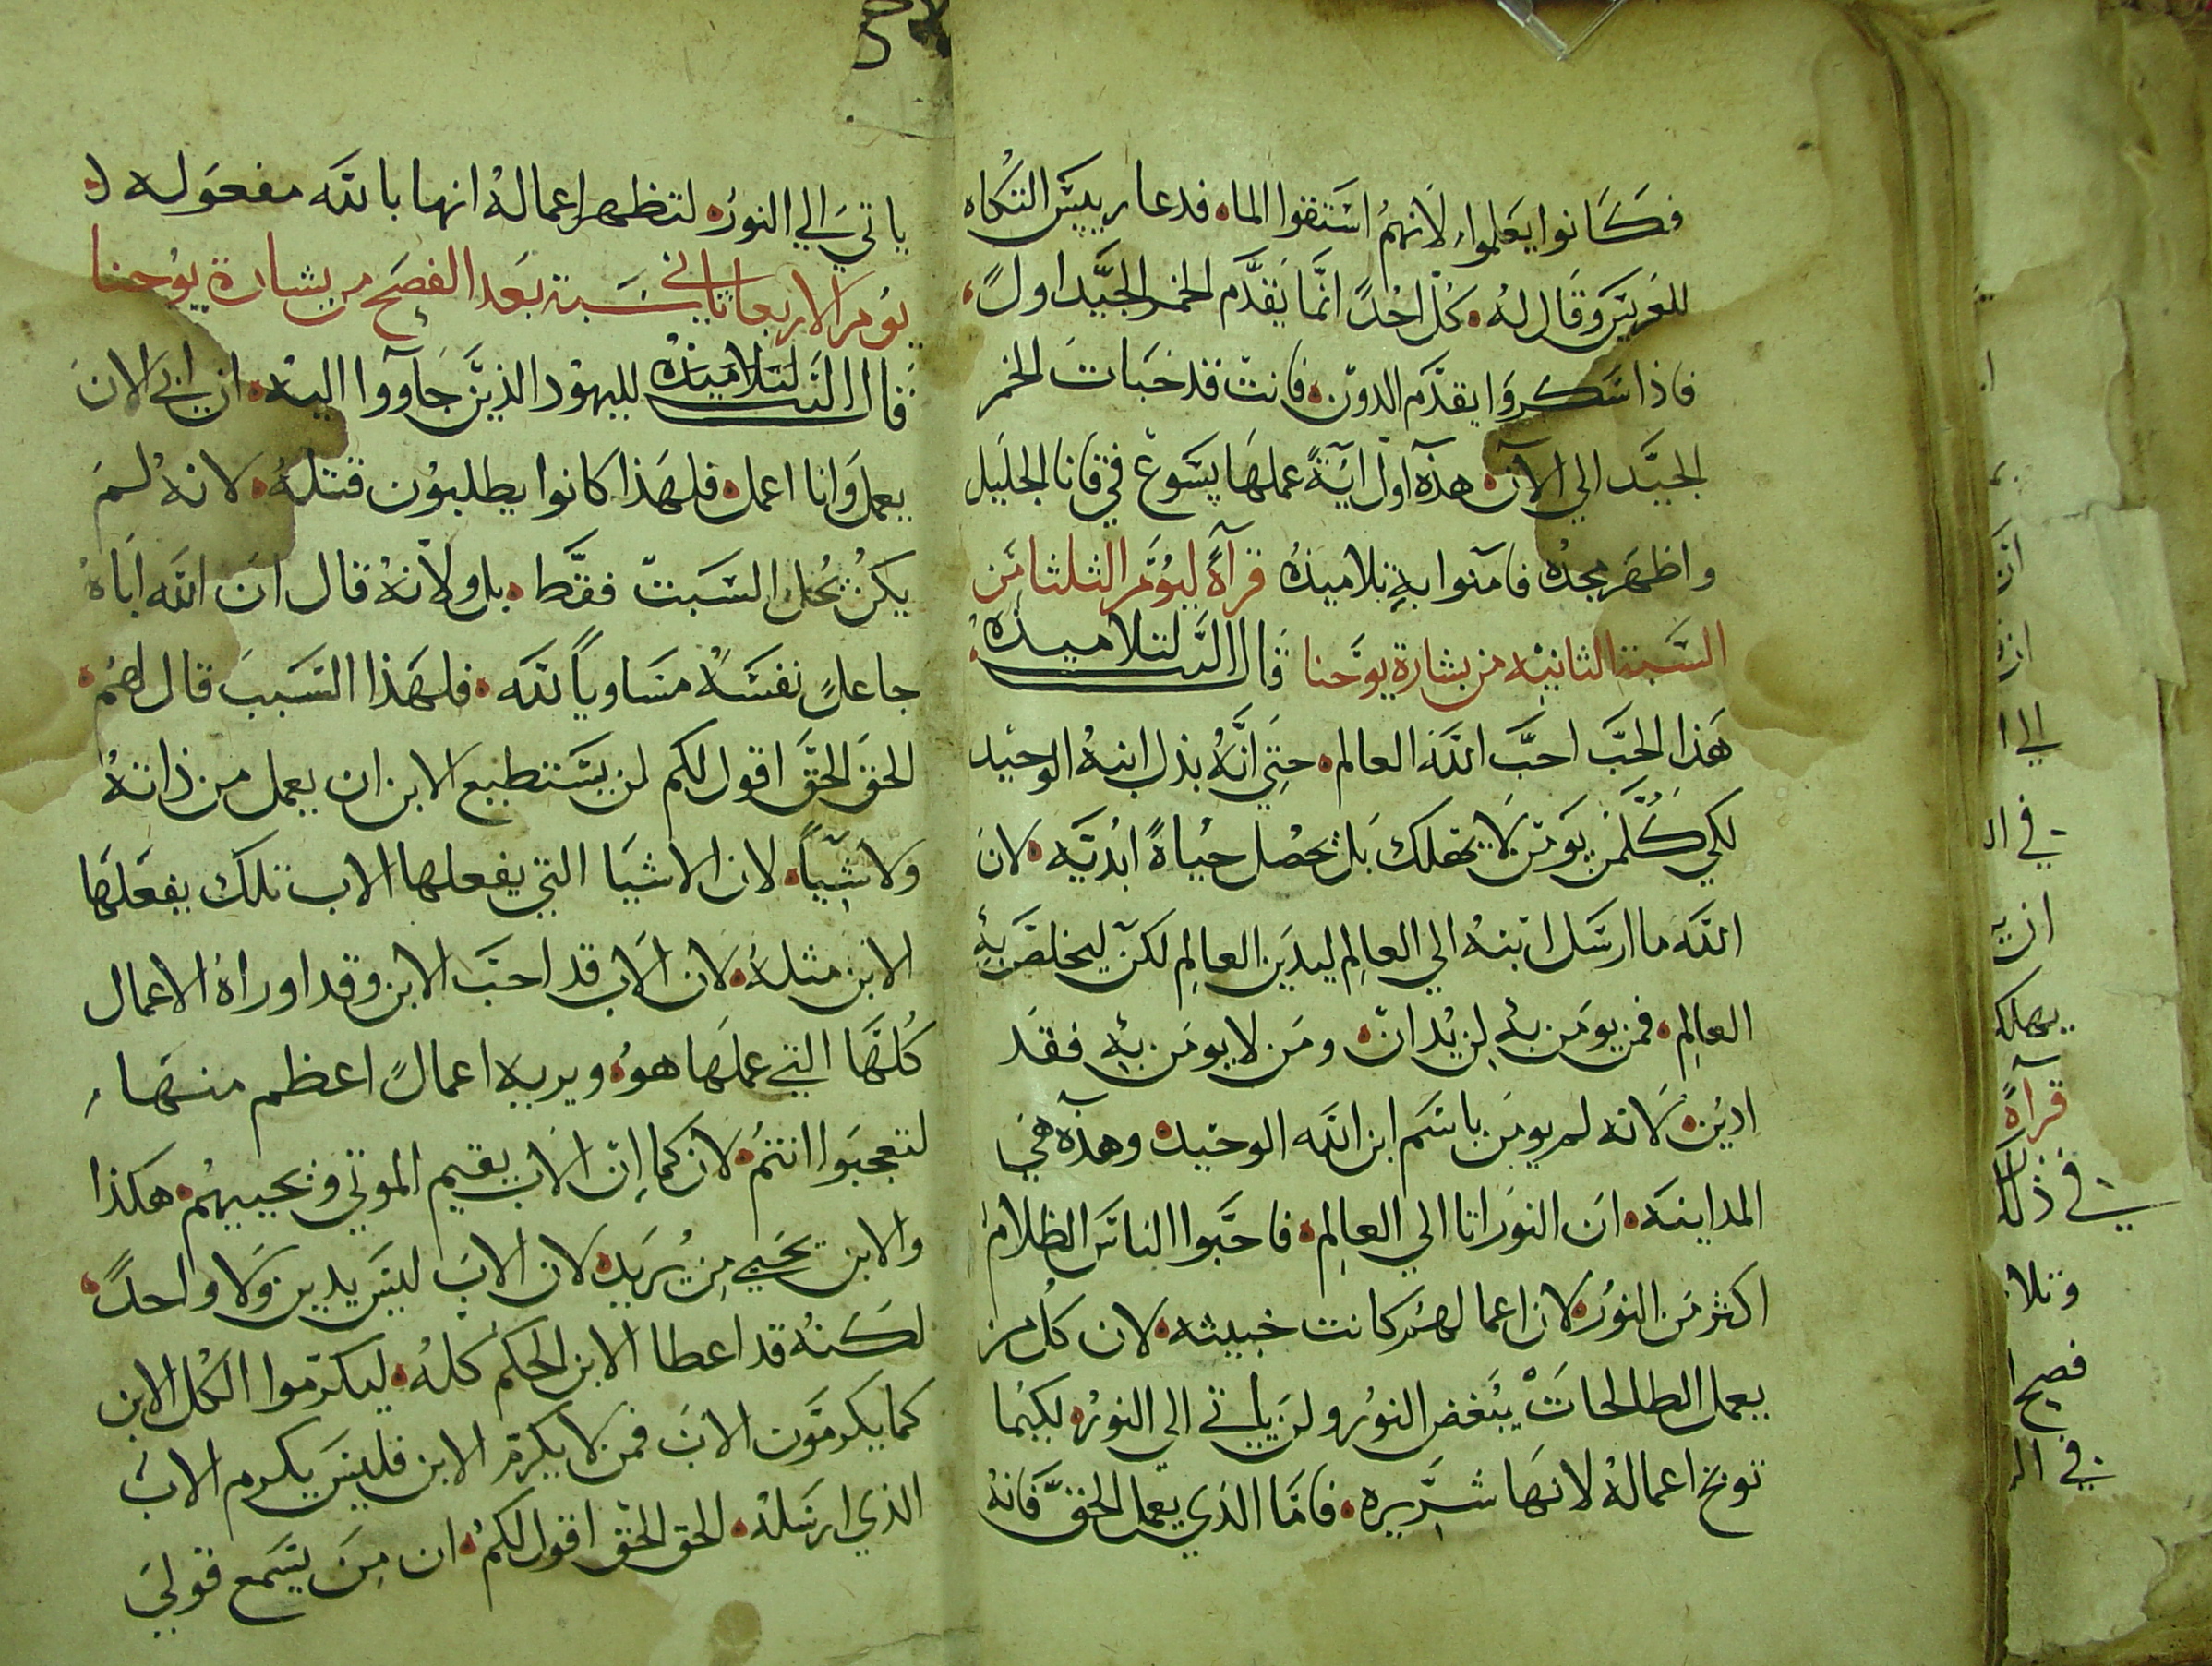 فكانوا يعلموا، لانهم استقوا الماء فدعا رييس التكاه
للعريس وقال له كل احدً انما يقدم الخمر الجيد اولً
فاذا سكروا يقدم الدون فانت قد خبات الخمر
الجيد الي الآن هذه اول اية عملها يسوع في قانا الجليل
واظهر مجده فامنوا به تلاميذه قرآة ليوم الثلثا من
السبة الثانيه من بشارة يوحنا قال الرب لتلاميذه
هذا الحب احب الله العالم حتي انه بذل ابنه الوحيد
لكي كلمن يومن لا يهلك بل يحصل حياة ابديه لان
الله ما ارسل ابنه الي العالم ليدين العالم لكن ليخلص به
العالم فمن يومن به لن يدان ومن لا يومن به فقد
ادين لانه لم يومن باسم ابن الله الوحيد وهذه هي
المداينه ان النور اتا الي العالم فاحبوا الناس الظلام
اكثر من النور لان اعمالهم كانت خبيثه لان كل من
يعمل الطالحات يبغض النور ولن ياتي الي النور لكيما
توبخ اعماله لانها شريره فاما الذي يعمل الحق فانه
ياتي الي النور لتظهر اعماله انها بالله مفعوله
يوم الاربعا ثاني سبة بعد الفصح من بشارة يوحنا
قال الرب لتلاميذه لليهود الذين جآووا اليه ان ابي الان
يعمل وانا اعمل فلهذا كانوا يطلبون قتله لانه لم
يكن يحل السبت فقط بل ولانه قال ان الله اباه
جاعلٍ نفسه مساوياً لله فلهذا السبب قال لهم
الحق الحق اقول لكم لن يستطيع الابن ان يعمل من ذاته
ولا شياً لان الاشيا التي يفعلها الاب تلك يفعلها
الابن مثله لان الاب قد احب الابن وقد اوراه الاعمال
كلها التي عملها هو ويريه اعمالً اعظم منها
لتعجبوا انتم لان كما ان الاب يقيم الموتي ويحييهم هكذا
والابن يحيي من يريد لان الاب ليس يدين ولا واحدً
لكنه قد اعطا الابن الحكم كله ليكرموا الكل الابن
كما يكرمون الاب فمن لا يكرم الابن فليس يكرم الاب
الذي ارسله الحق الحق اقول لكم ان من يسمع قولي